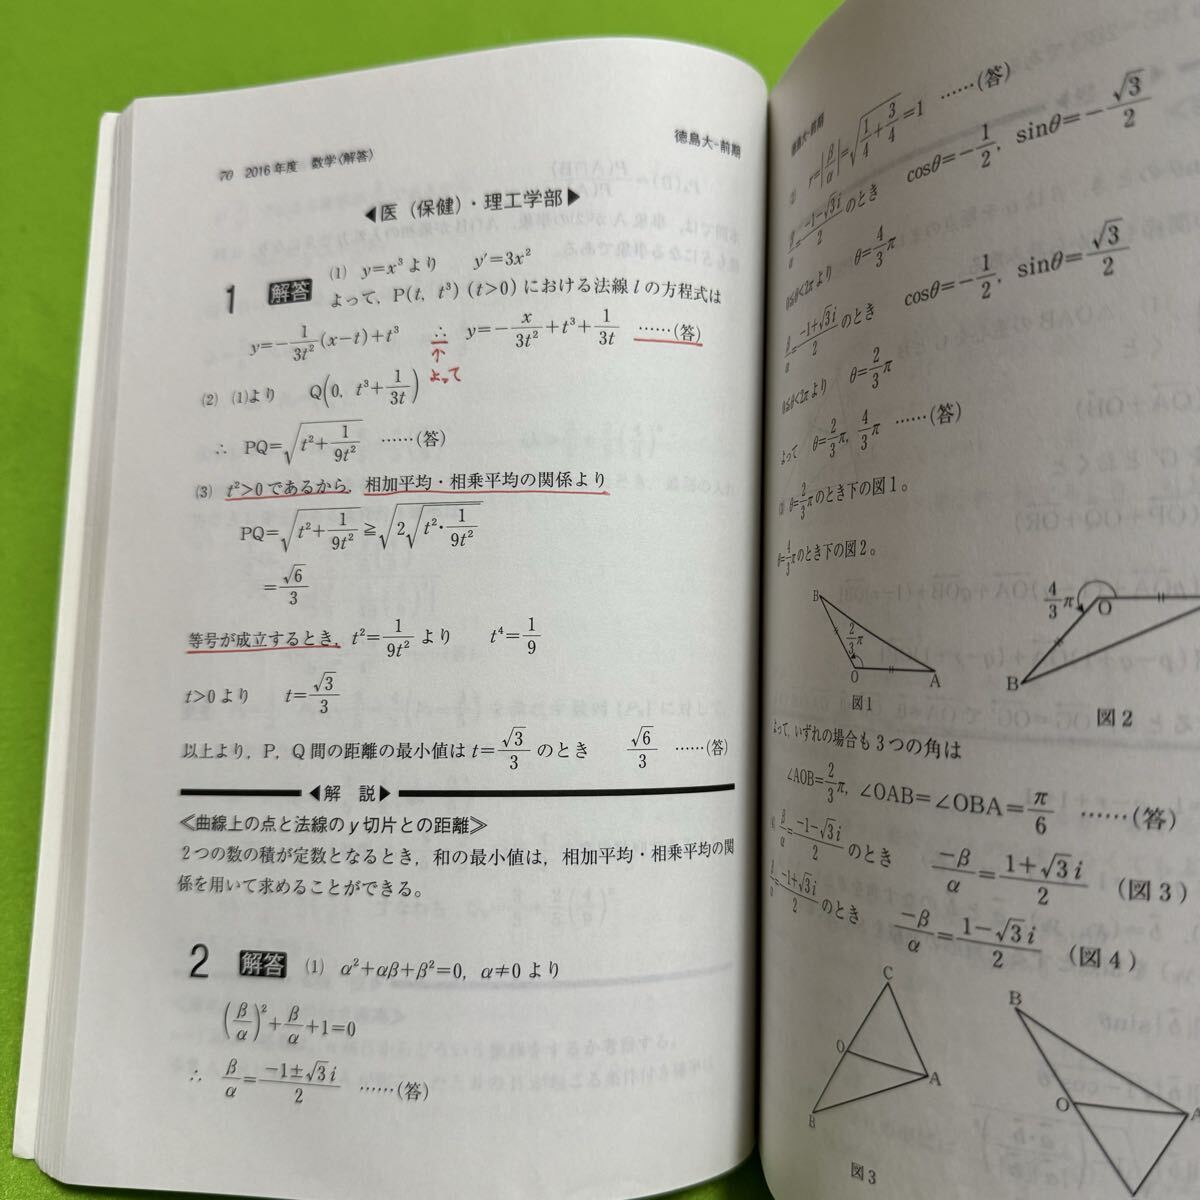 70 2016年度 数学〈解答〉
徳島大-前期
◀医(保健)・理工学部▶
1 解答 (1) y=x³より y′=3x²
よって，P(t, t³) (t>0) における法線 l の方程式は
y=-1/3t²(x-t)+t³ ∴ y=-x/3t²+t³+1/3t ……(答)
↑
よって
(2) (1)より Q(0, t³+1/3t)
∴ PQ=√(t²+1/9t²) ……(答)
(3) t²>0であるから，相加平均・相乗平均の関係より
PQ=√(t²+1/9t²)≧√(2√(t²·1/9t²))
=√6/3
等号が成立するとき，t²=1/9t² より t⁴=1/9
t>0より t=√3/3
以上より，P，Q間の距離の最小値は t=√3/3 のとき √6/3 ……(答)
◀解 説▶
≪曲線上の点と法線の y 切片との距離≫
2つの数の積が定数となるとき，和の最小値は，相加平均・相乗平均の関
係を用いて求めることができる。
2 解答 (1) α²+αβ+β²=0，α≠0より
(β/α)²+β/α+1=0
∴ β/α=(-1±√3i)/2 ……(答)
徳島大-前期
(2) r=|β/α|=√(1/4+3/4)=1 ……(答)
β/α=(-1-√3i)/2のとき cosθ=-1/2，sinθ=-√3/2
0≦θ<2πより θ=4/3π
β/α=(-1+√3i)/2のとき cosθ=-1/2，sinθ=√3/2
0≦θ<2πより θ=2/3π
よって θ=2/3π，4/3π ……(答)
(3) θ=2/3πのとき下の図1。
θ=4/3πのとき下の図2。
B
2/3π
O
A
図1
4/3π
O
B
図2
よって，いずれの場合も3つの角は
∠AOB=2/3π，∠OAB=∠OBA=π/6 ……(答)
(4) β/α=(-1-√3i)/2のとき -β/α=(1+√3i)/2 (図3)
β/α=(-1+√3i)/2のとき -β/α=(1-√3i)/2 (図4)
C
O
A
B
図3
B
O
A